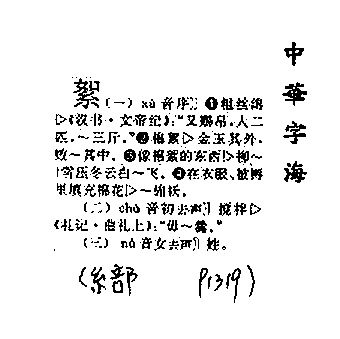 中華字海
絮(一)xù音序〗❶粗丝绵
▷《汉书·文帝纪》:“又赐帛,人二
匹,～三斤。”❷棉絮▷金玉其外,
败～其中。❸像棉絮的东西▷柳～
〖雪压冬云白～飞。❹在衣服、被褥
里填充棉花▷～绵袄。
(二)chù音初去声〗搅拌▷
《礼记·曲礼上》:“毋～羹。”
(三)nù音女去声〗姓。
(糸部 P1319)